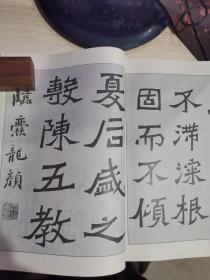 不滯深根
固而不傾
夏后盛之
敷陳五教
臨爨龍顏